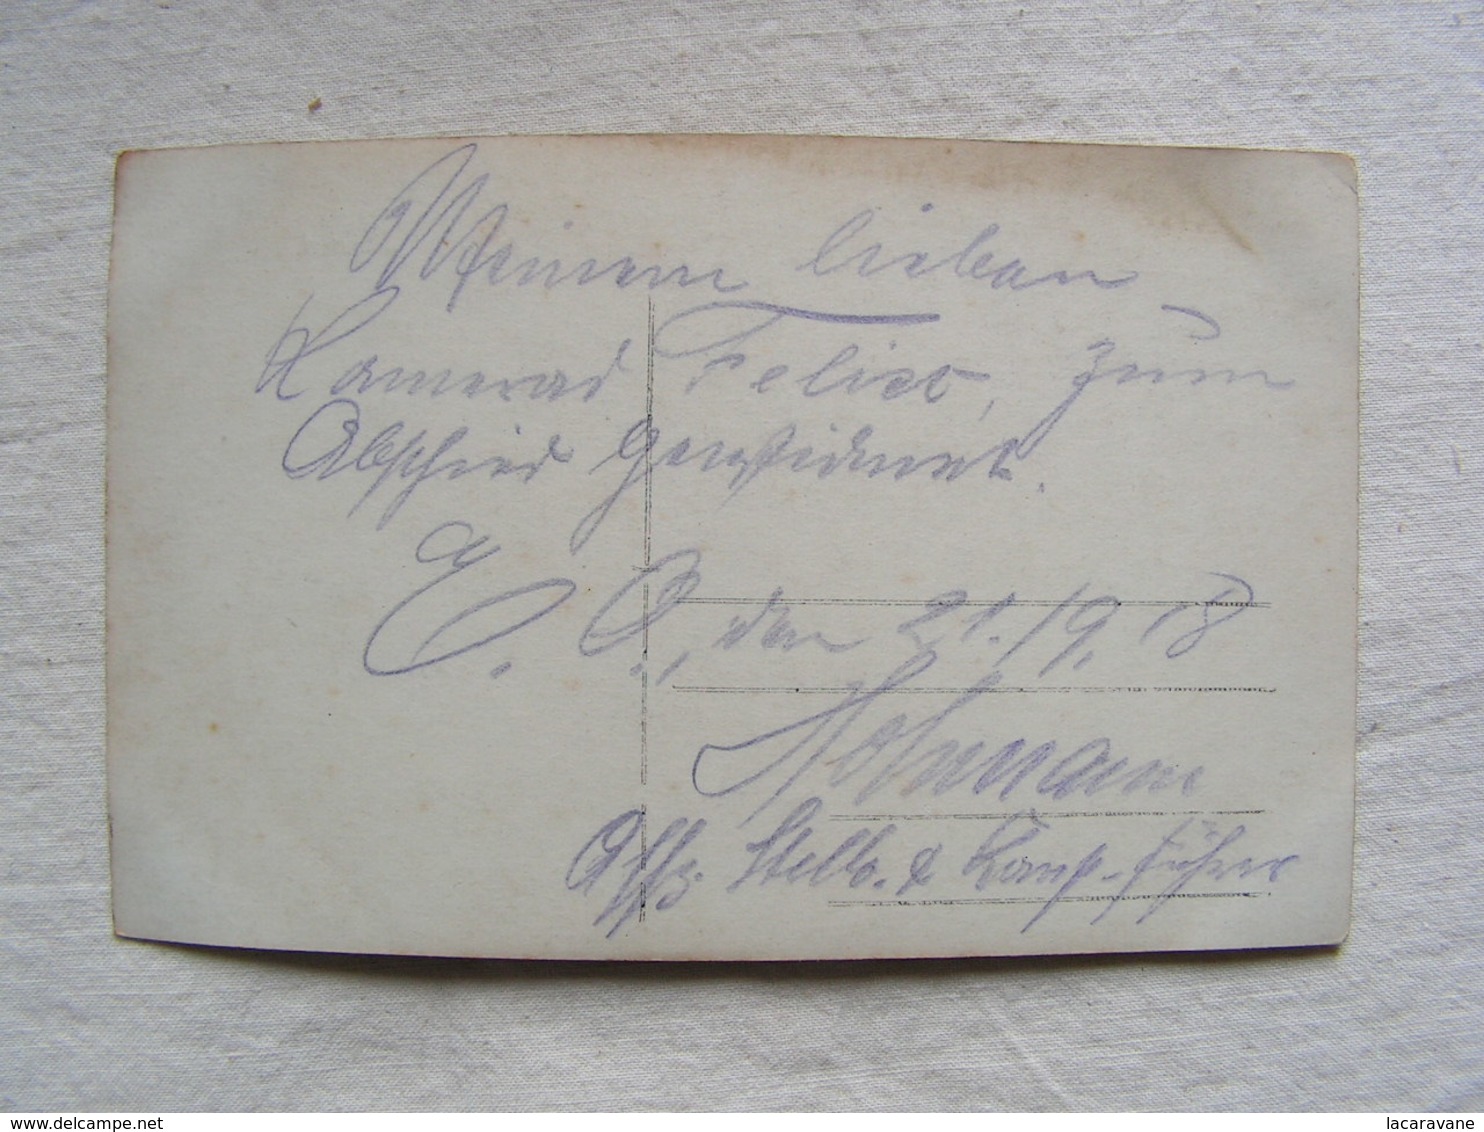 Meinem lieben
Kamerad Felix, zum
Abschied gewidmet.
E. O., den 21./9. 18
Hohmann
Offz. Stellv. & Komp.-führer
lacaravane
delcampe.net